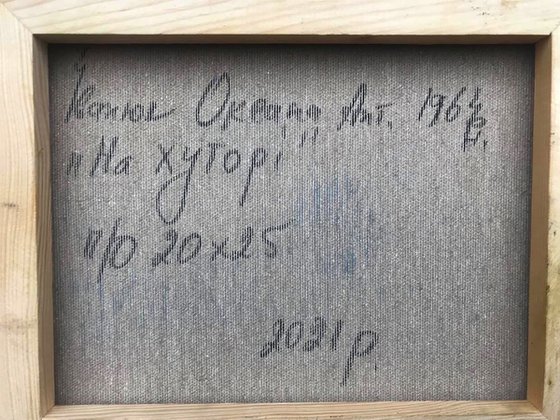 Івонюк Оксана Ант. 1964 р.н.
"На хуторі"
п/о 20х25
2021 р.